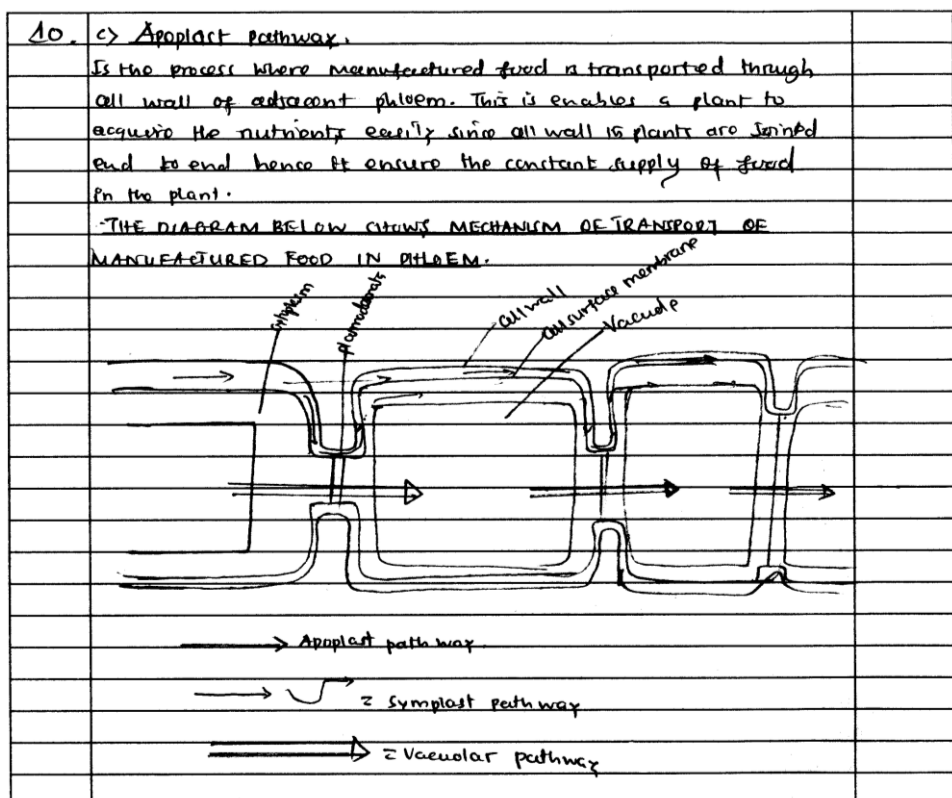 10. c) Apoplast pathway.
Is the process where manufactured food is transported through
cell wall of adjacent phloem. This is enables a plant to
acquire the nutrients easily since cell wall in plants are joined
end to end hence it ensure the constant supply of food
in the plant.
-THE DIAGRAM BELOW SHOWS MECHANISM OF TRANSPORT OF
MANUFACTURED FOOD IN PHLOEM.
cell wall
cell surface membrane
Vacuole
→ Apoplast pathway.
= Symplast pathway
= Vacuolar pathway